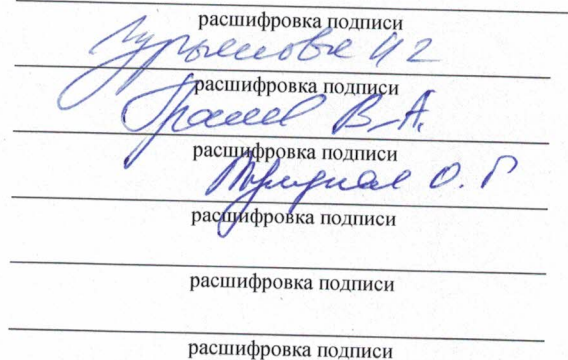 расшифровка подписи
расшифровка подписи
В.А.
расшифровка подписи
О.Г
расшифровка подписи
расшифровка подписи
расшифровка подписи